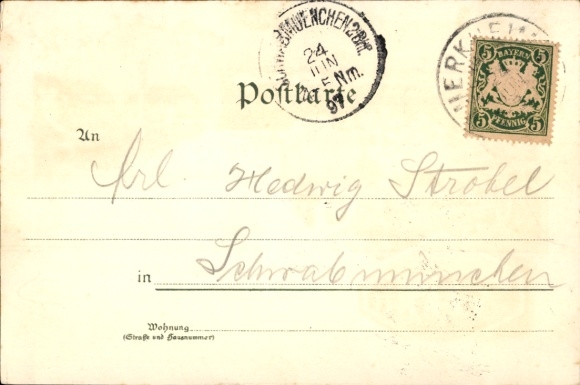 24
JUN
5 Nm.
97
5 BAYERN 5
5 PFENNIG 5
Postkarte.
An
Frl. Hedwig Strobel
in Schwabmünchen
Wohnung
(Straße und Hausnummer)